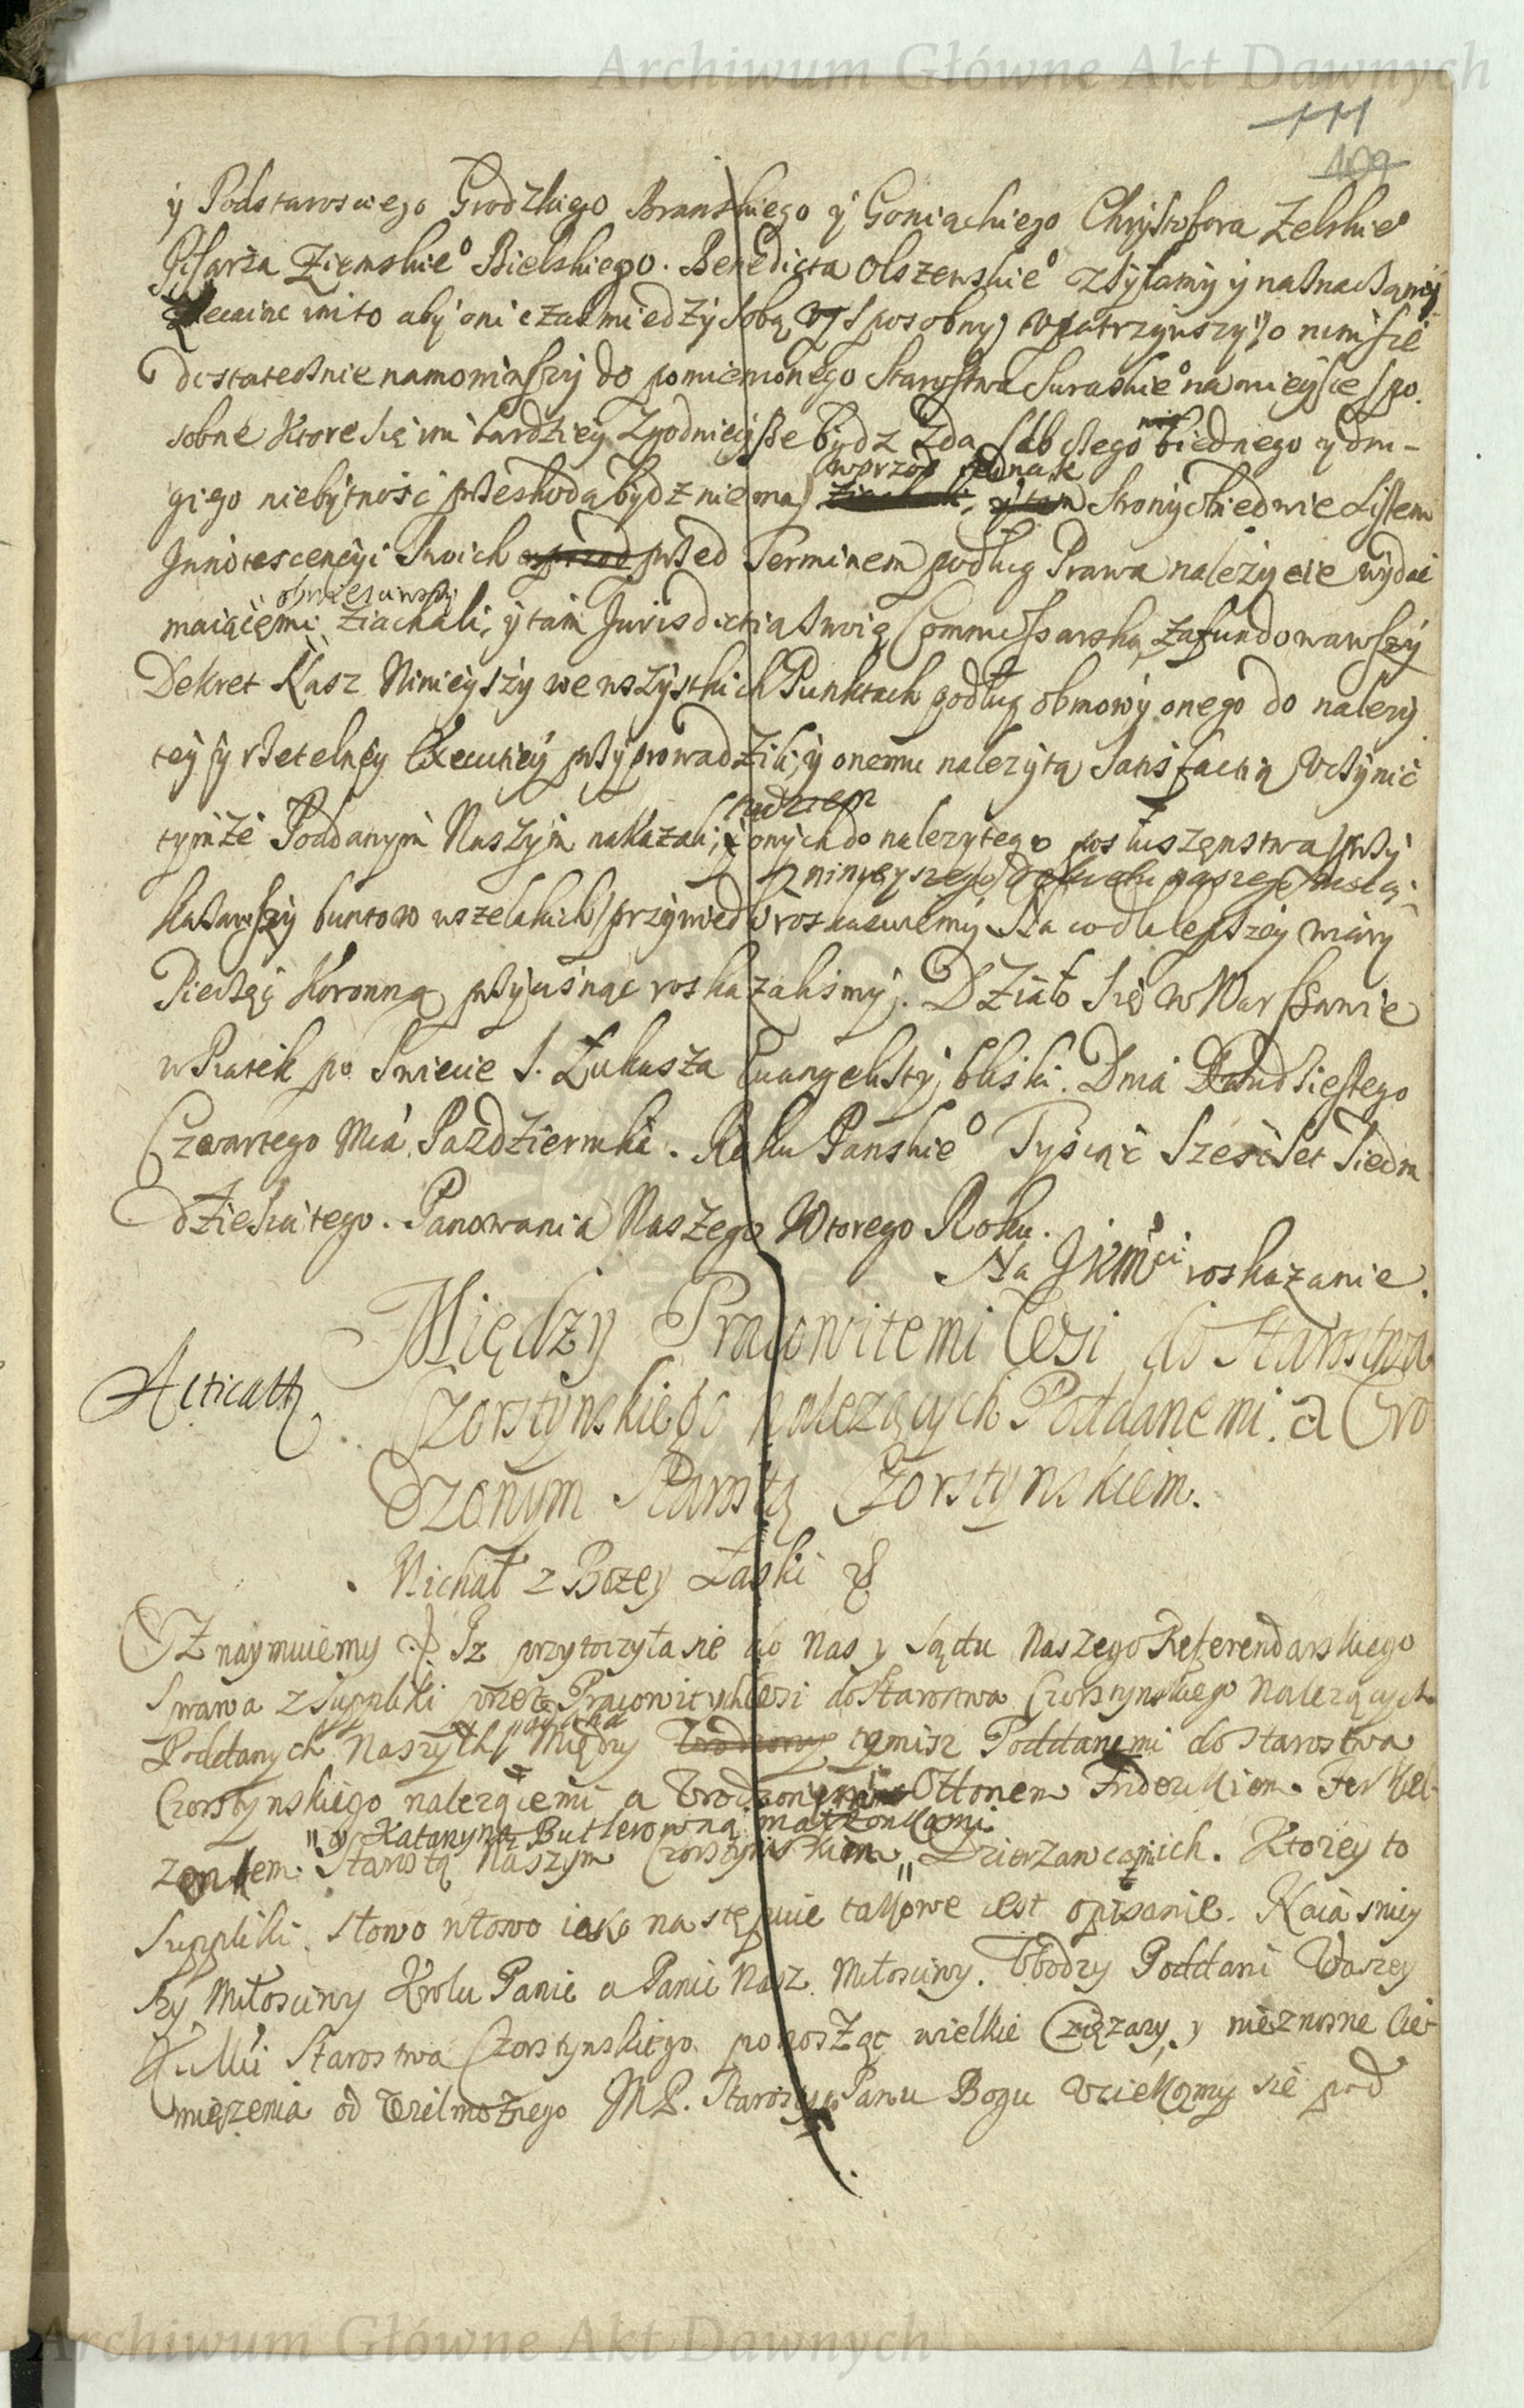 Archiwum Główne Akt Dawnych
111
109
y Podstarosciego Grodzkiego Branskiego y Goniąckiego Chrystofora Zelskie°
Pisarza Ziemskie° Bielskiego. Benedicta Olszewskie° zsyłamy y naßnaczamy
zlecaiąc im to aby oni czas między sobą vpatrzywszy, o nim się
dostatecznie namowiwszy do pomienionego Starostwa Suraskie° na mieysce spo
sobne ktore się im bardziey zgodnieyße bydz zda (lubo ktorego nie biednego y dru-
wprzod jednak
giego niebytność przeskodą bydz nie ma) ziachali, y tam Strony Obiedwie Listem
Innotescencyi Swoich wprzod przed Terminem podług Prawa należycie wydać
obwiesciwszy
maiącemi ziachali, y tam Jurisdictią swoią Commissarską zafundowawszy
Dekret Nasz Ninieyszy we wszystkich Punktach podług obmowy onego do należy
tey y rzetelney Executiey przyprowadzili, y onemu należytą Satisfactią vczynić
tymże Poddanym Naszym nakazali, y onych do należytego posłuszenstwa przy
ninieyszego Dekretu naszego
kazawszy buntow wszelakich przywiedli roskazuiemy. Na co dla lepszey wiary
Pieczęć Koronną przycisnąc roskazalismy. Działo się w Warszawie
w Piątek po Swięcie S. Łukasza Ewangelisty bliski. Dnia Dwudziestego
Czwartego Mca Pazdziernika. Roku Panskie° Tysiąc Sześćset Siedm
dziesiątego. Panowania Naszego Wtorego Roku.
Na JKMci roskazanie.
Między Pracowitemi Wsi do Starostwa
Acticatt
Czorstynskiego należących Poddanemi. a Uro
dzonym Starostą Czorstynskiem.
Michał z Bozey Łaski
Oznaymuiemy Iz przytoczyła sie do nas y Sądu Naszego Referendarskiego
Sprawa z Suppliki przez Pracowitych Wsi do Starostwa Czorstynskiego należących
Poddanych Naszych Między Urodzony tymisz Poddanemi do Starostwa
Czorstynskiego należącemi a Urodzonym Ottonem Friderikiem Felkel
y Katarzyną Butlerowną małżonkami
zontem Starostą Naszym Czorstynskiem Dzierzawcami ich. Ktorey to
Suppliki słowo w słowo iako nastempuie takowe iest opisanie. Naiasniey
szy Miłosciwy Krolu Panie a Panie Nasz Miłosciwy. Ubodzy Poddani Waszey
KMci Starostwa Czorstynskiego ponosząc wielkie Cięzary, y nieznosne Cie
miężenia od Wielmożnego JMP. Starosty Panu Bogu vciekamy się pod
Archiwum Główne Akt Dawnych